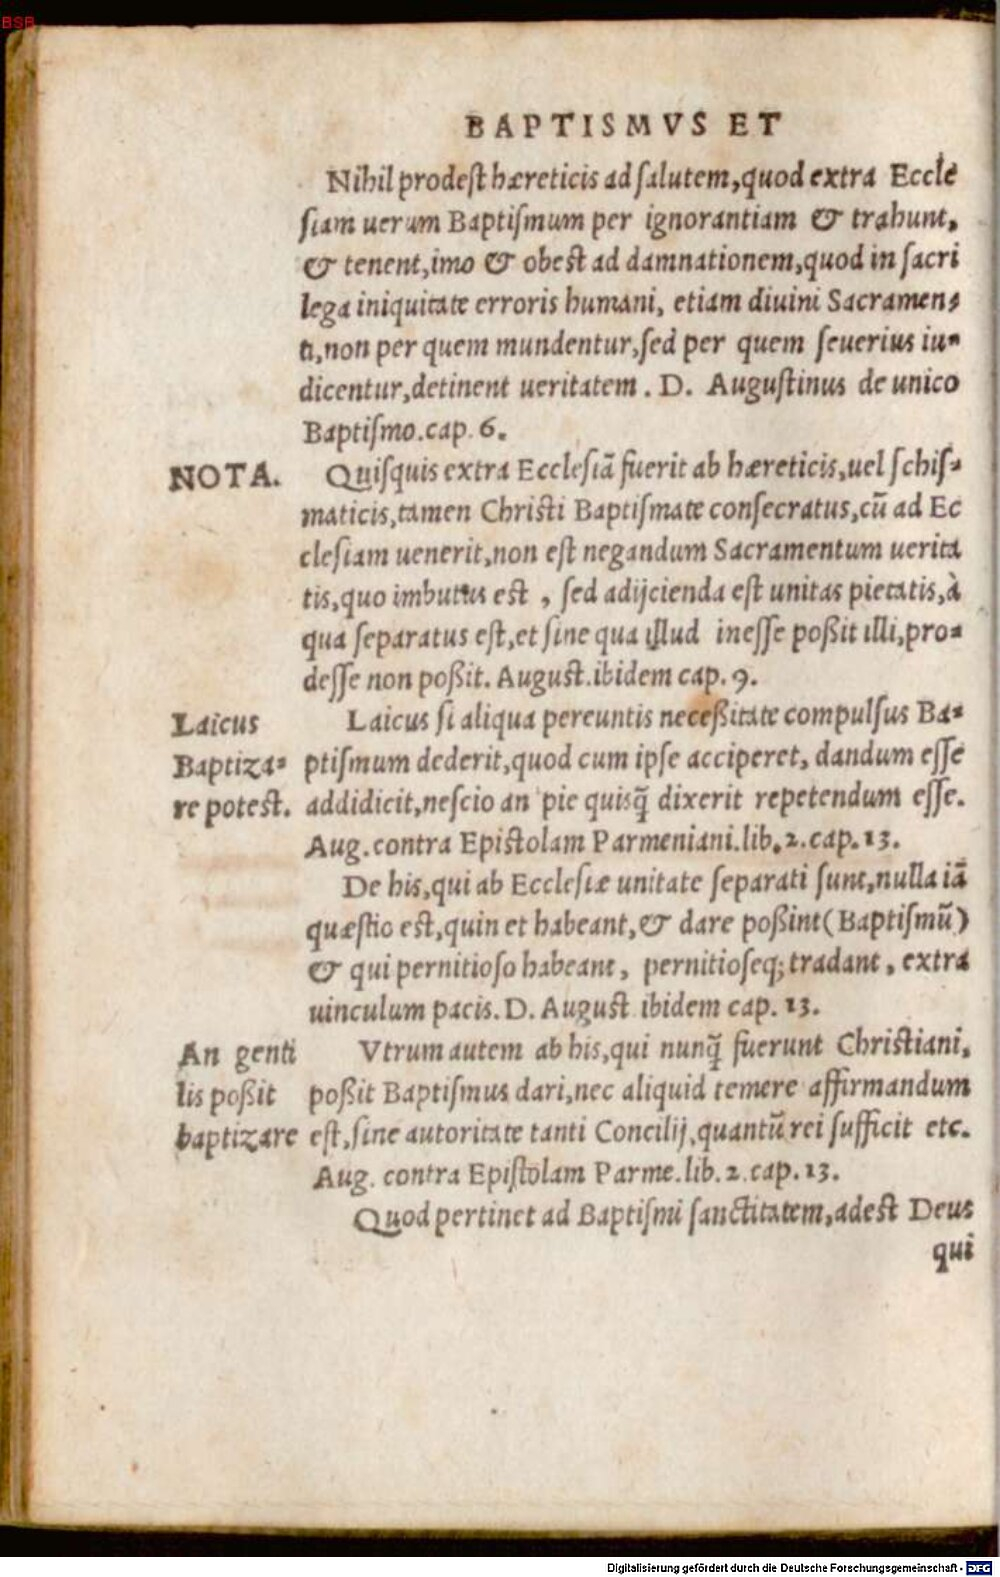 BSB
BAPTISMVS ET
Nihil prodest hæreticis ad ſalutem, quod extra Eccle
ſiam uerum Baptiſmum per ignorantiam & trahunt,
& tenent, imo & obest ad damnationem, quod in ſacri
lega iniquitate erroris humani, etiam diuini Sacramen-
ti, non per quem mundentur, ſed per quem ſeuerius iu-
dicentur, detinent ueritatem. D. Auguſtinus de unico
Baptiſmo. cap. 6.
NOTA.
Quiſquis extra Eccleſiã fuerit ab hæreticis, uel ſchiſ-
maticis, tamen Christi Baptiſmate conſecratus, cũ ad Ec
cleſiam uenerit, non eſt negandum Sacramentum uerita
tis, quo imbutus est, ſed adijcienda eſt unitas pietatis, à
qua ſeparatus eſt, et ſine qua illud ineſſe poßit illi, pro-
deſſe non poßit. August. ibidem cap. 9.
Laicus
Baptiza-
re potest.
Laicus ſi aliqua pereuntis neceßitate compulſus Ba-
ptiſmum dederit, quod cum ipſe acciperet, dandum eſſe
addidicit, neſcio an pie quisq̃ dixerit repetendum eſſe.
Aug. contra Epistolam Parmeniani. lib. 2. cap. 13.
De his, qui ab Eccleſiæ unitate ſeparati ſunt, nulla iã
quæſtio eſt, quin et habeant, & dare poßint (Baptiſmũ)
& qui pernitioſo habeant, pernitioſeq; tradant, extra
uinculum pacis. D. August ibidem cap. 13.
An genti
lis poßit
baptizare
Vtrum autem ab his, qui nunq̃ fuerunt Christiani,
poßit Baptiſmus dari, nec aliquid temere affirmandum
eſt, ſine autoritate tanti Concilij, quantũ rei ſufficit etc.
Aug. contra Epiſtolam Parme. lib. 2. cap. 13.
Quod pertinet ad Baptiſmi ſanctitatem, adest Deus
qui
Digitalisierung gefördert durch die Deutsche Forschungsgemeinschaft - DFG